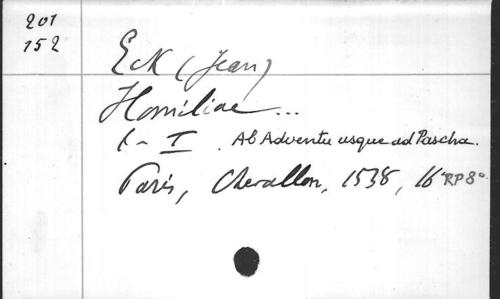 201
152
Eck (Jean)
Homiliae ...
t - I . Ab Adventu usque ad Pascha.
Paris, Chevallon, 1538, 16° RP8°.